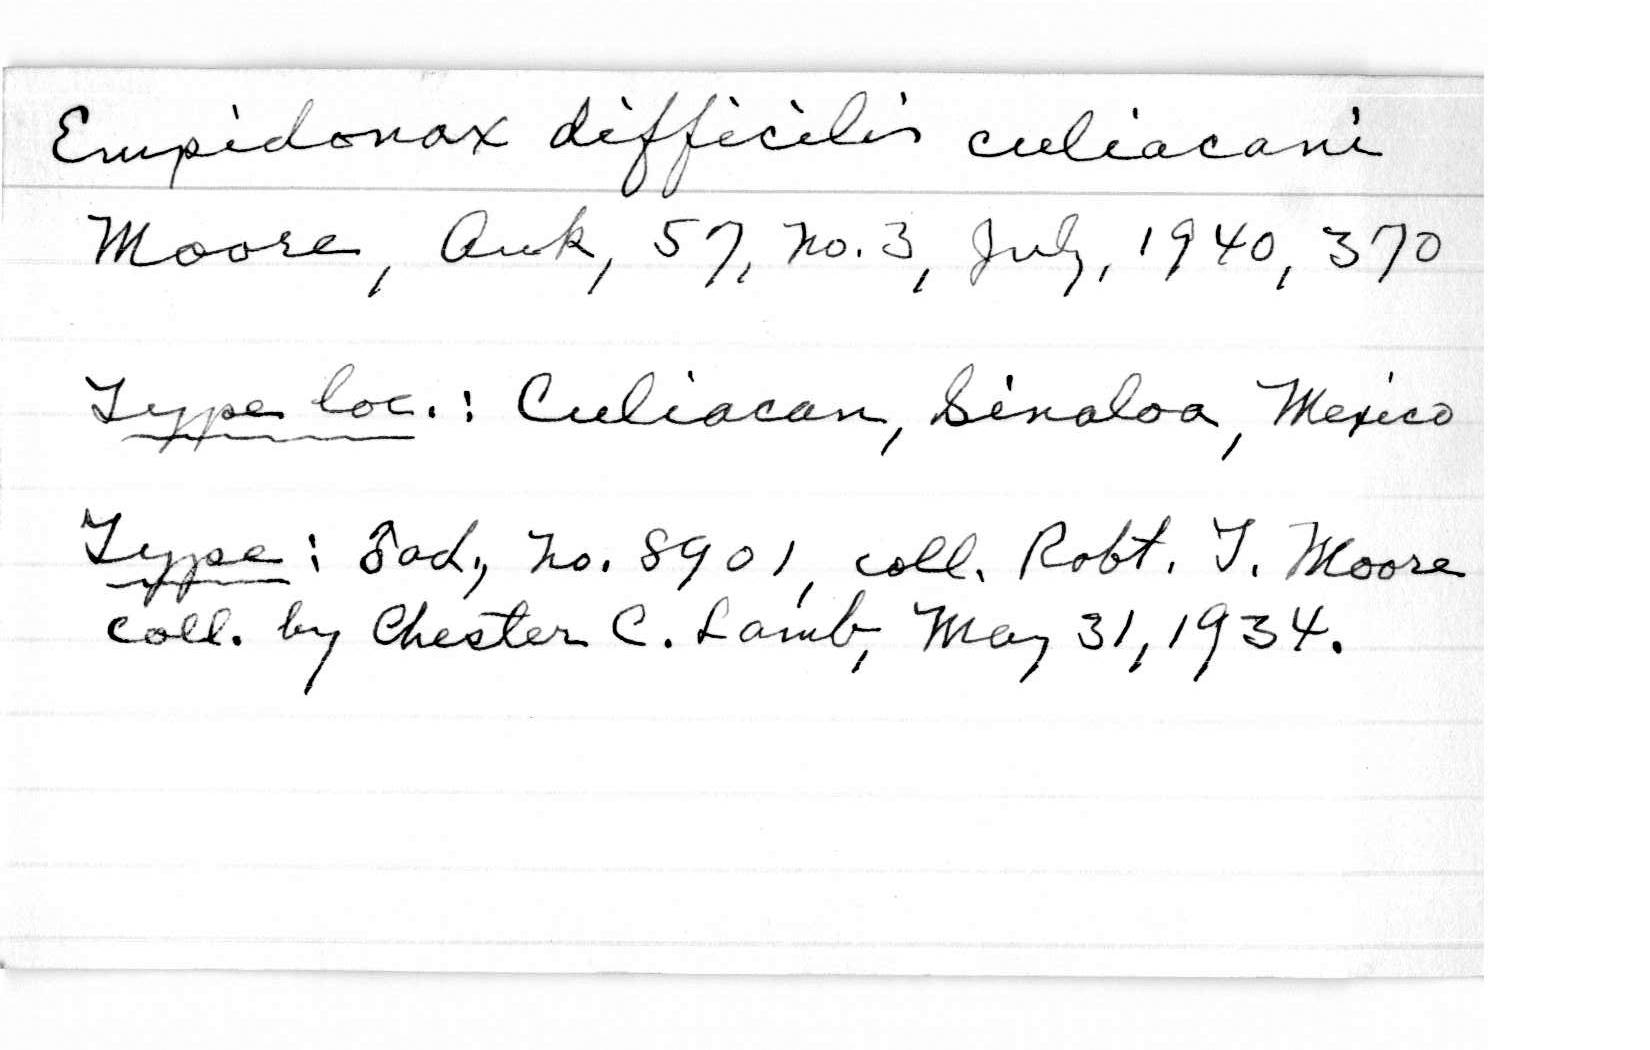 Empidonax difficilis culiacani
Moore, Auk, 57, no. 3, July, 1940, 370
Type loc.: Culiacan, Sinaloa, Mexico
Type: ♂ad., no. 8901, coll. Robt. T. Moore
coll. by Chester C. Lamb, May 31, 1934.